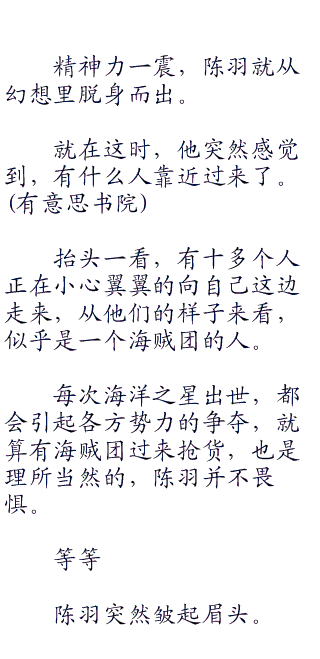 精神力一震，陈羽就从
幻想里脱身而出。
就在这时，他突然感觉
到，有什么人靠近过来了。
(有意思书院)
抬头一看，有十多个人
正在小心翼翼的向自己这边
走来，从他们的样子来看，
似乎是一个海贼团的人。
每次海洋之星出世，都
会引起各方势力的争夺，就
算有海贼团过来抢货，也是
理所当然的，陈羽并不畏
惧。
等等
陈羽突然皱起眉头。